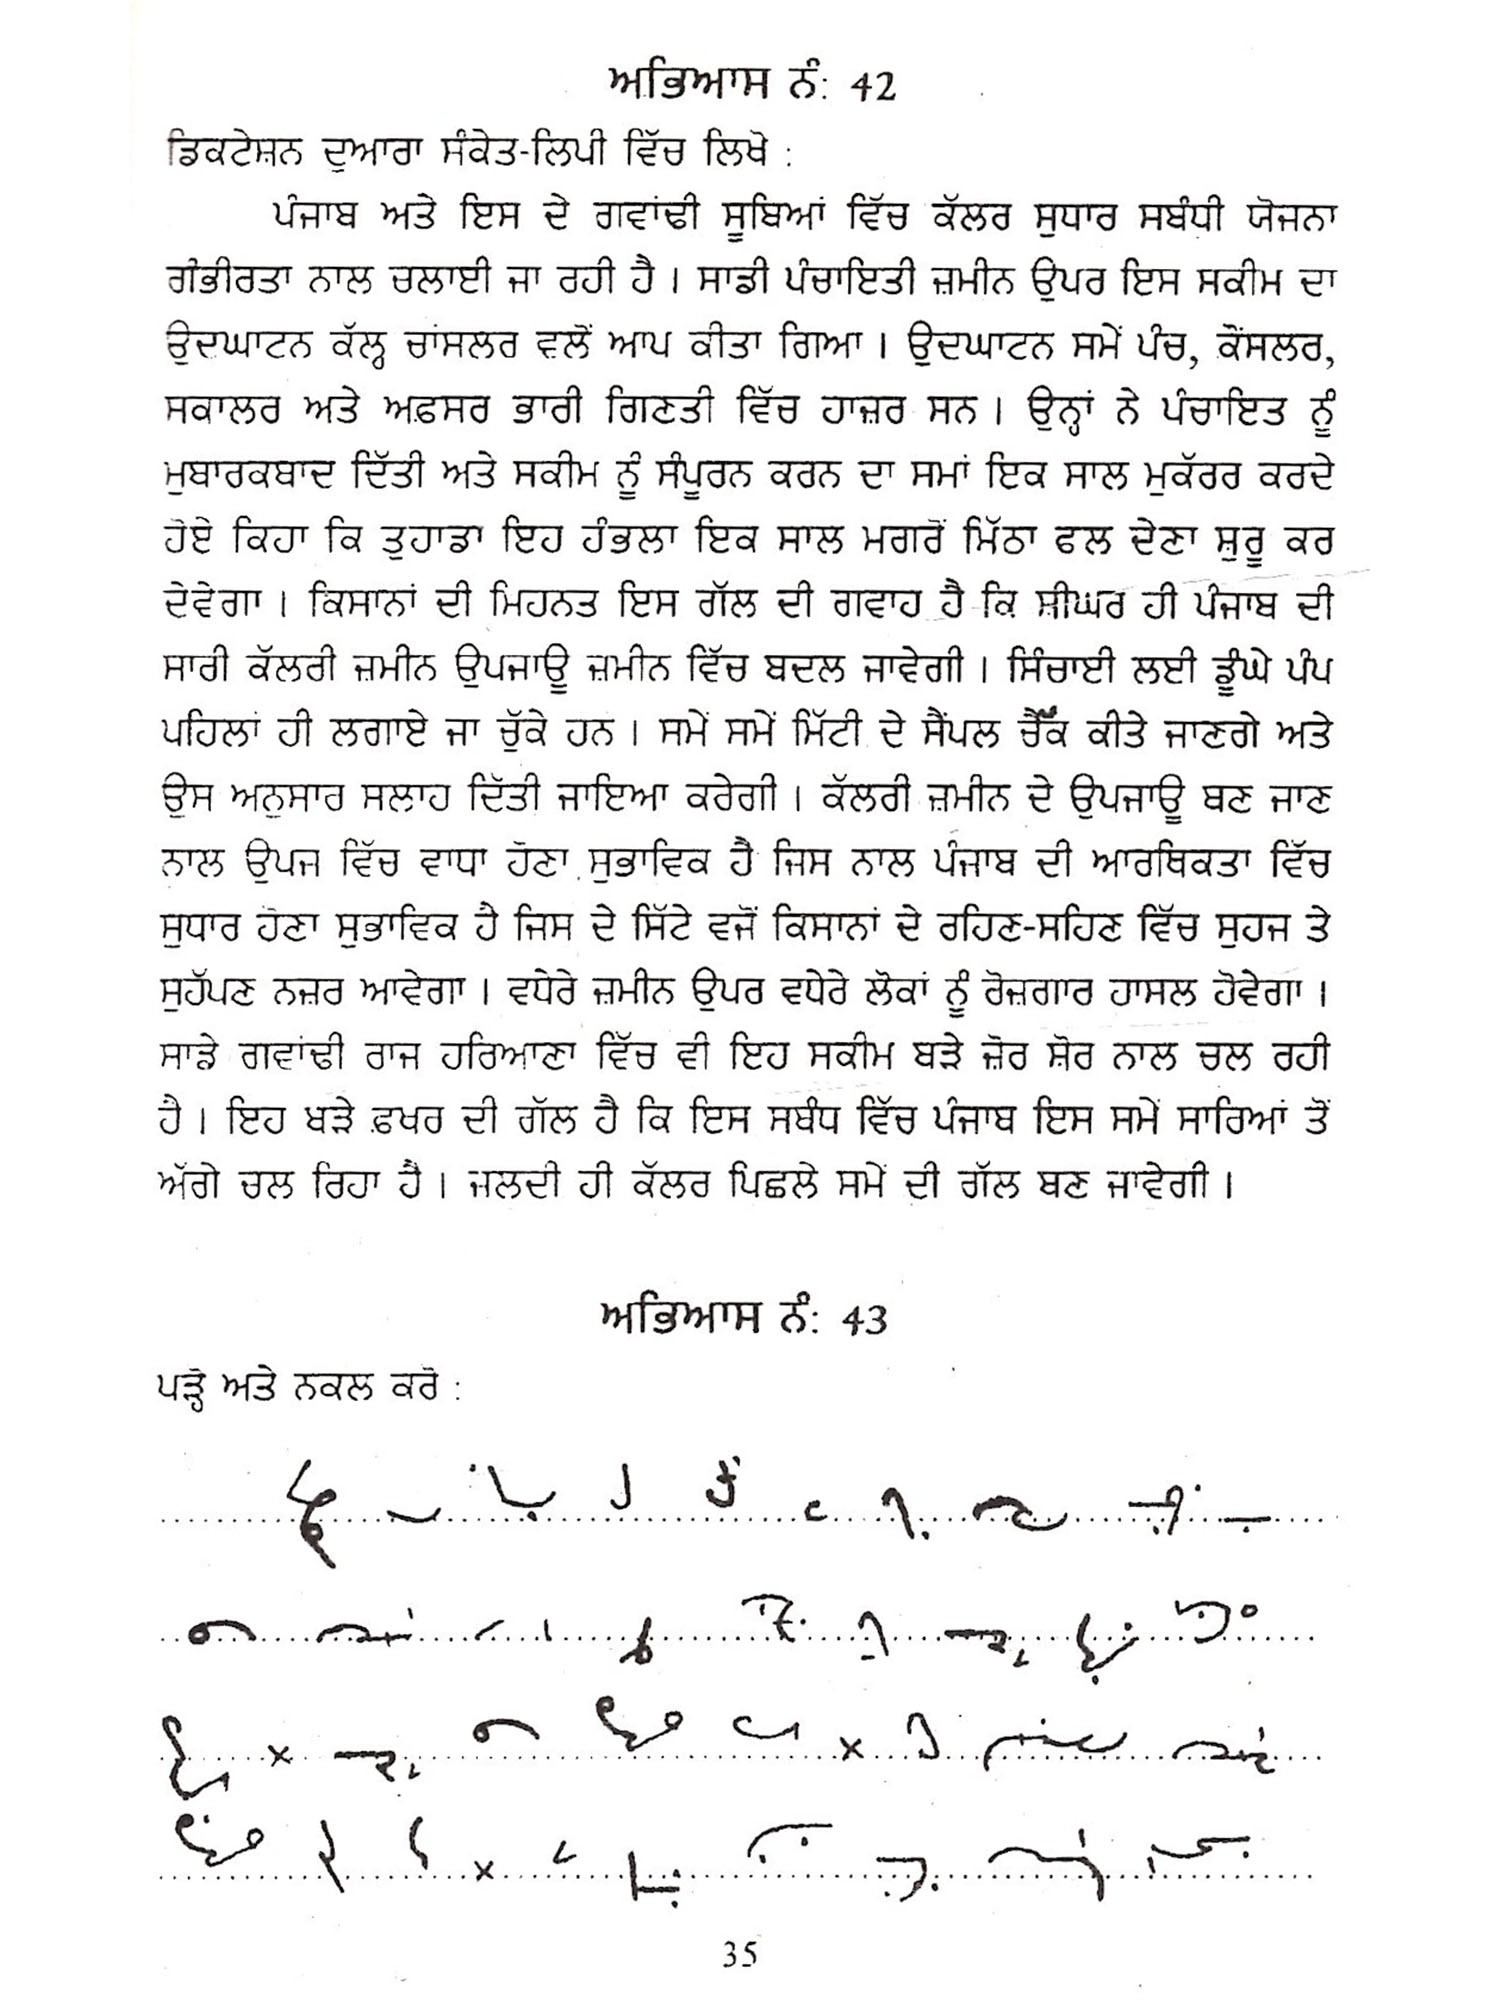 ਅਭਿਆਸ ਨੰ: 42
ਡਿਕਟੇਸ਼ਨ ਦੁਆਰਾ ਸੰਕੇਤ-ਲਿਪੀ ਵਿੱਚ ਲਿਖੋ :
ਪੰਜਾਬ ਅਤੇ ਇਸ ਦੇ ਗਵਾਂਢੀ ਸੂਬਿਆਂ ਵਿੱਚ ਕੱਲਰ ਸੁਧਾਰ ਸਬੰਧੀ ਯੋਜਨਾ
ਗੰਭੀਰਤਾ ਨਾਲ ਚਲਾਈ ਜਾ ਰਹੀ ਹੈ । ਸਾਡੀ ਪੰਚਾਇਤੀ ਜ਼ਮੀਨ ਉਪਰ ਇਸ ਸਕੀਮ ਦਾ
ਉਦਘਾਟਨ ਕੱਲ੍ਹ ਚਾਂਸਲਰ ਵਲੋਂ ਆਪ ਕੀਤਾ ਗਿਆ । ਉਦਘਾਟਨ ਸਮੇਂ ਪੰਚ, ਕੌਂਸਲਰ,
ਸਕਾਲਰ ਅਤੇ ਅਫ਼ਸਰ ਭਾਰੀ ਗਿਣਤੀ ਵਿੱਚ ਹਾਜ਼ਰ ਸਨ । ਉਨ੍ਹਾਂ ਨੇ ਪੰਚਾਇਤ ਨੂੰ
ਮੁਬਾਰਕਬਾਦ ਦਿੱਤੀ ਅਤੇ ਸਕੀਮ ਨੂੰ ਸੰਪੂਰਨ ਕਰਨ ਦਾ ਸਮਾਂ ਇਕ ਸਾਲ ਮੁਕੱਰਰ ਕਰਦੇ
ਹੋਏ ਕਿਹਾ ਕਿ ਤੁਹਾਡਾ ਇਹ ਹੰਭਲਾ ਇਕ ਸਾਲ ਮਗਰੋਂ ਮਿੱਠਾ ਫਲ ਦੇਣਾ ਸ਼ੁਰੂ ਕਰ
ਦੇਵੇਗਾ । ਕਿਸਾਨਾਂ ਦੀ ਮਿਹਨਤ ਇਸ ਗੱਲ ਦੀ ਗਵਾਹ ਹੈ ਕਿ ਸ਼ੀਘਰ ਹੀ ਪੰਜਾਬ ਦੀ
ਸਾਰੀ ਕੱਲਰੀ ਜ਼ਮੀਨ ਉਪਜਾਊ ਜ਼ਮੀਨ ਵਿੱਚ ਬਦਲ ਜਾਵੇਗੀ । ਸਿੰਚਾਈ ਲਈ ਡੂੰਘੇ ਪੰਪ
ਪਹਿਲਾਂ ਹੀ ਲਗਾਏ ਜਾ ਚੁੱਕੇ ਹਨ । ਸਮੇਂ ਸਮੇਂ ਮਿੱਟੀ ਦੇ ਸੈਂਪਲ ਚੈੱਕ ਕੀਤੇ ਜਾਣਗੇ ਅਤੇ
ਉਸ ਅਨੁਸਾਰ ਸਲਾਹ ਦਿੱਤੀ ਜਾਇਆ ਕਰੇਗੀ । ਕੱਲਰੀ ਜ਼ਮੀਨ ਦੇ ਉਪਜਾਊ ਬਣ ਜਾਣ
ਨਾਲ ਉਪਜ ਵਿੱਚ ਵਾਧਾ ਹੋਣਾ ਸੁਭਾਵਿਕ ਹੈ ਜਿਸ ਨਾਲ ਪੰਜਾਬ ਦੀ ਆਰਥਿਕਤਾ ਵਿੱਚ
ਸੁਧਾਰ ਹੋਣਾ ਸੁਭਾਵਿਕ ਹੈ ਜਿਸ ਦੇ ਸਿੱਟੇ ਵਜੋਂ ਕਿਸਾਨਾਂ ਦੇ ਰਹਿਣ-ਸਹਿਣ ਵਿੱਚ ਸੁਹਜ ਤੇ
ਸੁਹੱਪਣ ਨਜ਼ਰ ਆਵੇਗਾ । ਵਧੇਰੇ ਜ਼ਮੀਨ ਉਪਰ ਵਧੇਰੇ ਲੋਕਾਂ ਨੂੰ ਰੋਜ਼ਗਾਰ ਹਾਸਲ ਹੋਵੇਗਾ ।
ਸਾਡੇ ਗਵਾਂਢੀ ਰਾਜ ਹਰਿਆਣਾ ਵਿੱਚ ਵੀ ਇਹ ਸਕੀਮ ਬੜੇ ਜ਼ੋਰ ਸ਼ੋਰ ਨਾਲ ਚਲ ਰਹੀ
ਹੈ । ਇਹ ਬੜੇ ਫ਼ਖਰ ਦੀ ਗੱਲ ਹੈ ਕਿ ਇਸ ਸਬੰਧ ਵਿੱਚ ਪੰਜਾਬ ਇਸ ਸਮੇਂ ਸਾਰਿਆਂ ਤੋਂ
ਅੱਗੇ ਚਲ ਰਿਹਾ ਹੈ । ਜਲਦੀ ਹੀ ਕੱਲਰ ਪਿਛਲੇ ਸਮੇਂ ਦੀ ਗੱਲ ਬਣ ਜਾਵੇਗੀ ।
ਅਭਿਆਸ ਨੰ: 43
ਪੜ੍ਹੋ ਅਤੇ ਨਕਲ ਕਰੋ :
35